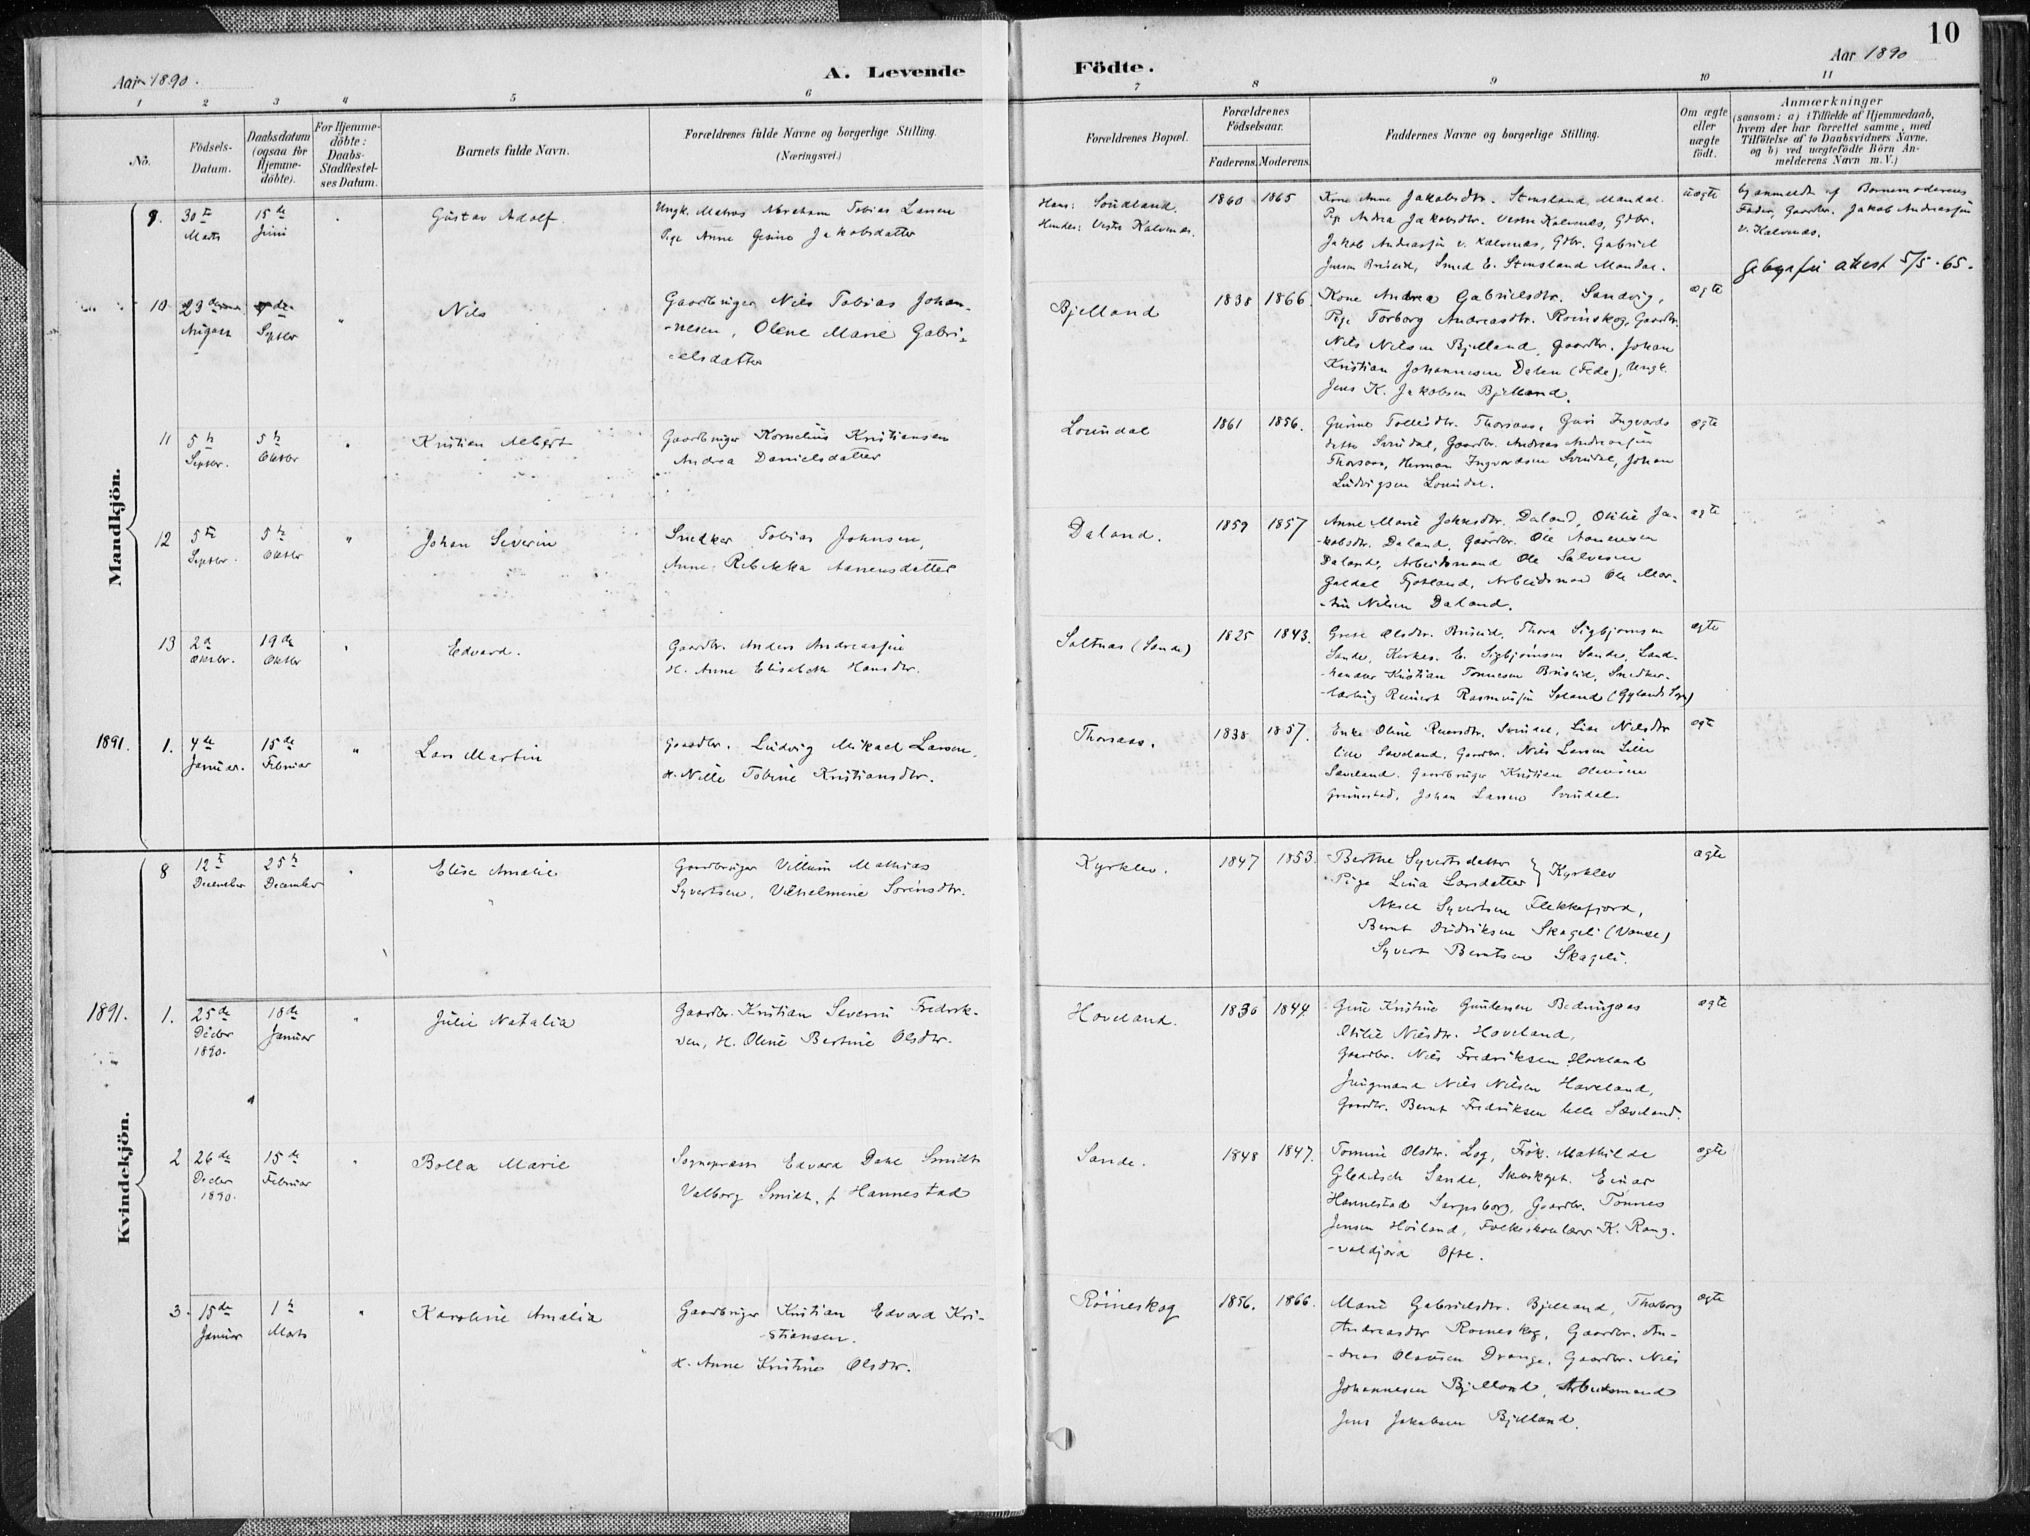 10
Aar 1890.
A. Levende
Födte.
Aar 1890
1 2 3 4 5 6 7 8 9 10 11
No.
Födsels-
Datum.
Daabsdatum
(ogsaa for
Hjemme-
döbte).
For Hjemme-
döbte:
Daabs-
Stadfæstel-
ses Datum.
Barnets fulde Navn.
Forældrenes fulde Navne og borgerlige Stilling.
(Næringsvei.)
Forældrenes Bopæl.
Forældrenes
Födselsaar.
Faderens. Moderens.
Faddernes Navne og borgerlige Stilling.
Om ægte
eller
uægte
födt.
Anmærkninger
(saasom: a) i Tilfælde af Hjemmedaab,
hvem der har forrettet samme, med
Tilföielse af to Daabsvidners Navne.
og b) ved uægtefödte Börn An-
melderens Navn m. V.)
Mandkjön.
9.
30te
Marts
15de
Juni
Gustav Adolf.
Ungk. Matros Abraham Tobias Larsen
Pige Anne Gesine Jakobsdatter
Hans: Soudland.
Hendes: Vestre Kalvenæs.
1860 1865
Kone Anne Jakobsdtr. Stensland, Mandal.
Pige Andrea Jakobsdtr. Vestre Kalvenæs, Gdbr.
Jakob Andreassen v. Kalvenæs, Gdbr. Gabriel
Jensen Briseid, Smed E. Stensland Mandal.
uægte
b) anmeldt af Barnemoderens
Fader, Gaardbr. Jakob Andreassen
v. Kalvenæs.
attest 5/5-65.
10
23
August
Septbr
Nils
Gaardbruger Nils Tobias Johan-
-nesen, Olene Marie Gabri-
elsdatter
Bjelland
1838 1866.
Kone Andrea Gabrielsdtr. Sandvig,
Pige Torborg Andreasdtr. Röinskog, Gaardbr.
Nils Nilsen Bjelland, Gaardbr. Johan
Kristian Johannesen Dalen (Fede), Ungk.
Jens K. Jakobsen Bjelland.
ægte
11
5te
Septbr.
5te
Oktbr
Kristian Albert
Gaardbruger Kornelius Kristiansen
Andrea Danielsdatter
Loundal
1861 1856.
Gurine Tollefsdtr. Thorsaas, Guri Ingvards
datter Svindal, Gaardbr. Andreas Andreassen
Thorsaas, Herman Ingvardsen Svindal, Johan
Ludvigsen Loundal.
ægte
12
5te
Septbr.
5te
Oktbr
Johan Severin
Snedker Tobias Johnsen,
Anne Rebekka Aanensdatter
Daland.
1859 1857
Anne Marie Johnsdtr. Daland, Otilie Ja-
-kobsdtr. Daland, Gaardbr. Ole Aanensen
Daland, Arbeidsmand Ole Salvesen
Galdal Fjotland, Arbeidsmand Ole Mar-
-tin Nilsen Daland.
ægte
13
2den
Oktbr.
19de
Oktbr
Edvard.
Gaardbr. Anders Andreassen
H. Anne Elisabeth Hansdtr.
Saltnæs (Sande)
1825 1843.
Grete Olsdtr. Briseid, Thora Sigbjörnsen
Sande, Kirkes. E. Sigbjörnsen Sande, Land-
-handler Kristian Tönnesen Briseid, Snedker-
-lærling Reinert Rasmussen Soland (Gylands Sogn)
ægte
1891.
1.
4de
Januar.
15de
Februar
Lars Martin
Gaardbr. Ludvig Mikael Larsen,
H. Nille Tobine Kristiansdtr.
Thorsaas.
1838 1857.
Enke Oline Reiersdtr. Svindal, Lise Nilsdtr
lille Sæveland, Gaardbr. Nils Larsen Lille
Sæveland. Gaardbruger Kristian Olausen
Grimestad, Johan Larsen Svindal.
ægte
Kvindekjön.
8
12te
December
25te
December
Elise Amalie
Gaardbruger Villum Mathias
Syvertsen, Vilhelmine Sörensdtr.
Kyrklev.
1847 1853.
Berthe Syvertsdatter
Pige Lina Larsdatter } Kyrklev
Aksel Syvertsen Flekkefjord,
Bernt Didriksen Skageli (Vanse)
Syvert Berntsen Skageli.
ægte
1891.
1.
25de
Decbr
1890.
18de
Januar
Julie Natalia
Gaardbr. Kristian Severin Fredrik-
sen, H. Oline Bertine Olsdtr.
Hoveland.
1830 1844.
Gine Kristine Gundersen Bedringaas
Otilie Nilsdtr. Hoveland,
Gaardbr. Nils Fredriksen Hoveland
Jungmand Nils Nilsen Hoveland,
Gaardbr. Bernt Fredriksen lille Sæveland.
ægte
2
26de
Decbr
1890.
15de
Februar
Bolla Marie
Sogneprest Edvard Dahl Smidt
Valborg Smidt, f. Hannestad
Sande.
1848 1847.
Tomine Olsdtr. Log, Frök. Mathilde
Gleditsch Sande, Skibskapt. Einar
Hannestad Sarpsborg, Gaardbr. Tönnes
Jensen Höiland, Folkeskolelærer K. Rang-
-valdjord Ofte.
ægte
3.
15de
Januar
1te
Marts
Karoline Amalia
Gaardbruger Kristian Edvard Kri-
-stiansen.
H. Anne Kristine Olsdtr.
Röineskog
1856. 1866.
Marie Gabrielsdtr. Bjelland, Thorborg
Andreasdtr Röineskog, Gaardbr. An-
-dreas Olausen Drange, Gaardbr. Nils
Johannesen Bjelland, Arbeidsmand
Jens Jakobsen Bjelland.
ægte